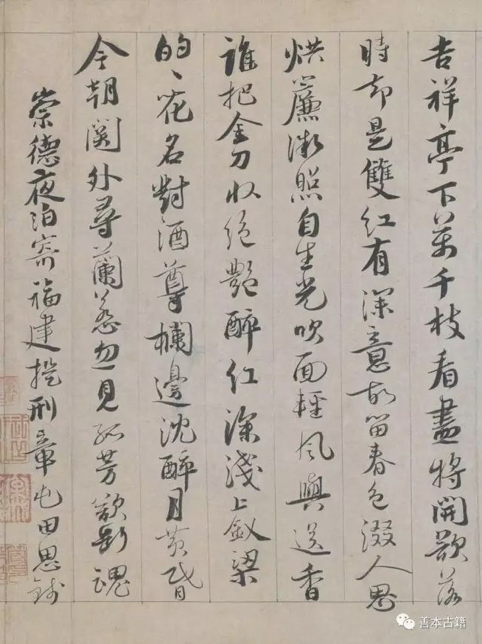 吉祥亭下萬千枝看盡將開欲落
時却是雙紅有深意故留春色綴人思
烘簾照自生光吹面輕風與送香
誰把金刀收絕艷醉紅深淺上釵梁
的〻花名對酒尊欄邊沈醉月黃昏
今朝關外尋蘭蕙忽見孤芳欲斷魂
崇德夜泊寄福建提刑章屯田思錢
善本古籍